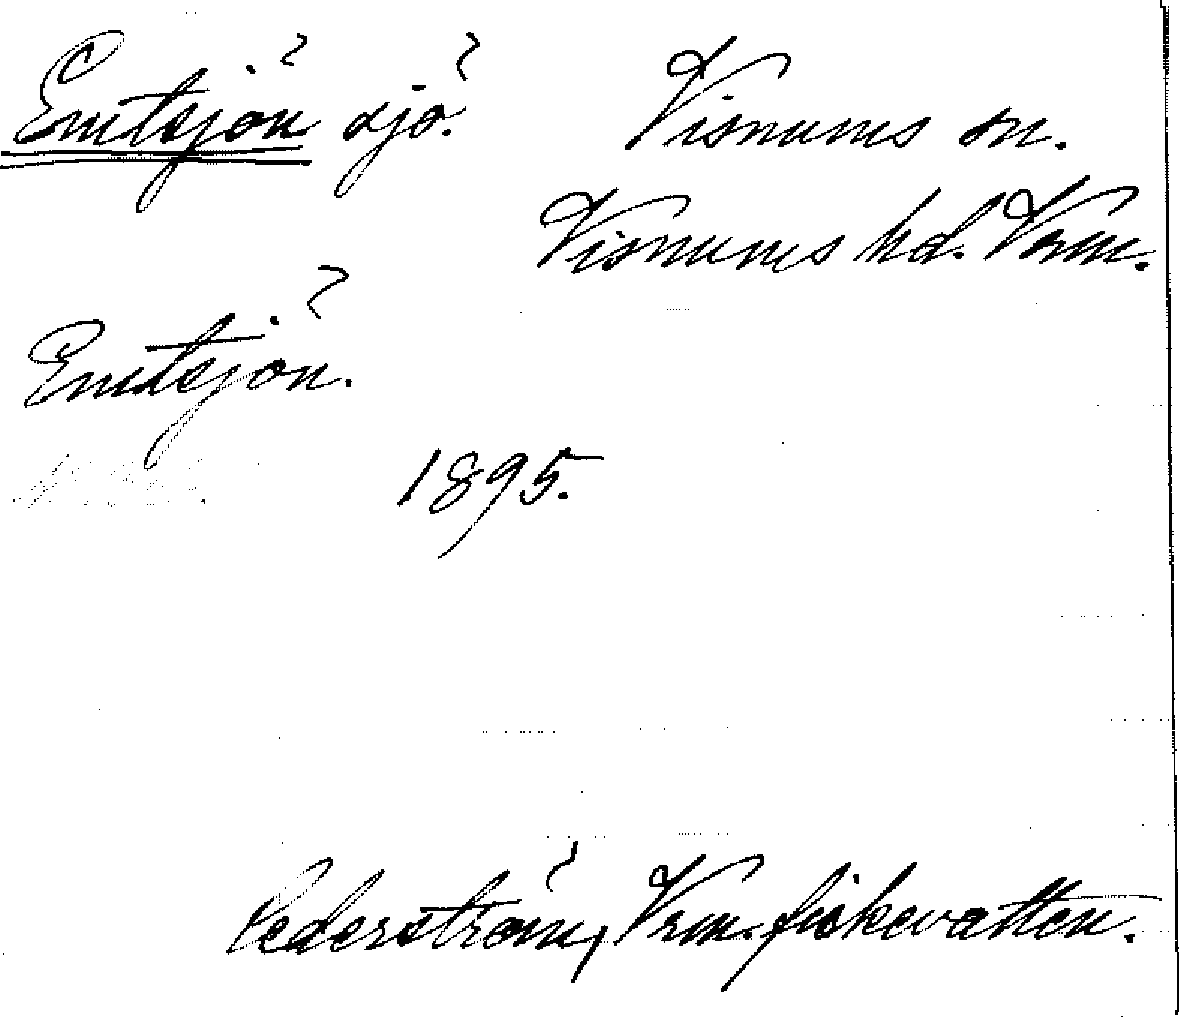 Emtsjön sjö.
Visnums sn.
Visnums hd. Vrm.
Emtsjön.
1895.
Cederström, Vrm. fiskevatten.